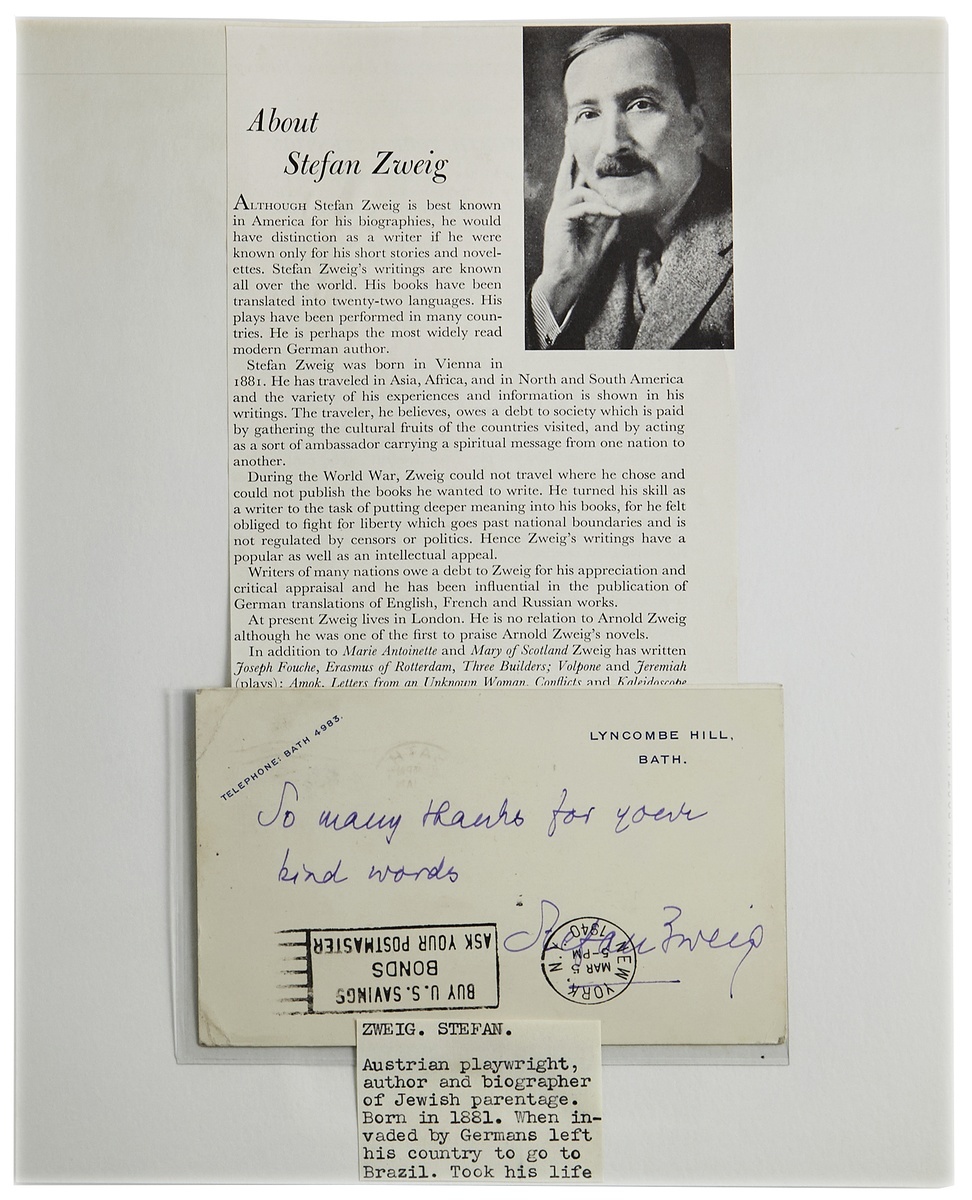 About
Stefan Zweig
ALTHOUGH Stefan Zweig is best known
in America for his biographies, he would
have distinction as a writer if he were
known only for his short stories and novel-
ettes. Stefan Zweig's writings are known
all over the world. His books have been
translated into twenty-two languages. His
plays have been performed in many coun-
tries. He is perhaps the most widely read
modern German author.
Stefan Zweig was born in Vienna in
1881. He has traveled in Asia, Africa, and in North and South America
and the variety of his experiences and information is shown in his
writings. The traveler, he believes, owes a debt to society which is paid
by gathering the cultural fruits of the countries visited, and by acting
as a sort of ambassador carrying a spiritual message from one nation to
another.
During the World War, Zweig could not travel where he chose and
could not publish the books he wanted to write. He turned his skill as
a writer to the task of putting deeper meaning into his books, for he felt
obliged to fight for liberty which goes past national boundaries and is
not regulated by censors or politics. Hence Zweig's writings have a
popular as well as an intellectual appeal.
Writers of many nations owe a debt to Zweig for his appreciation and
critical appraisal and he has been influential in the publication of
German translations of English, French and Russian works.
At present Zweig lives in London. He is no relation to Arnold Zweig
although he was one of the first to praise Arnold Zweig's novels.
In addition to Marie Antoinette and Mary of Scotland Zweig has written
Joseph Fouche, Erasmus of Rotterdam, Three Builders; Volpone and Jeremiah
(plays); Amok, Letters from an Unknown Woman, Conflicts and Kaleidoscope
TELEPHONE: BATH 4983.
LYNCOMBE HILL,
BATH.
So many thanks for your
kind words
Stefan Zweig
BUY U.S. SAVINGS
BONDS
ASK YOUR POSTMASTER
NEW YORK, N.Y.
MAR 5
5-PM
1940
ZWEIG. STEFAN.
Austrian playwright,
author and biographer
of Jewish parentage.
Born in 1881. When in-
vaded by Germans left
his country to go to
Brazil. Took his life